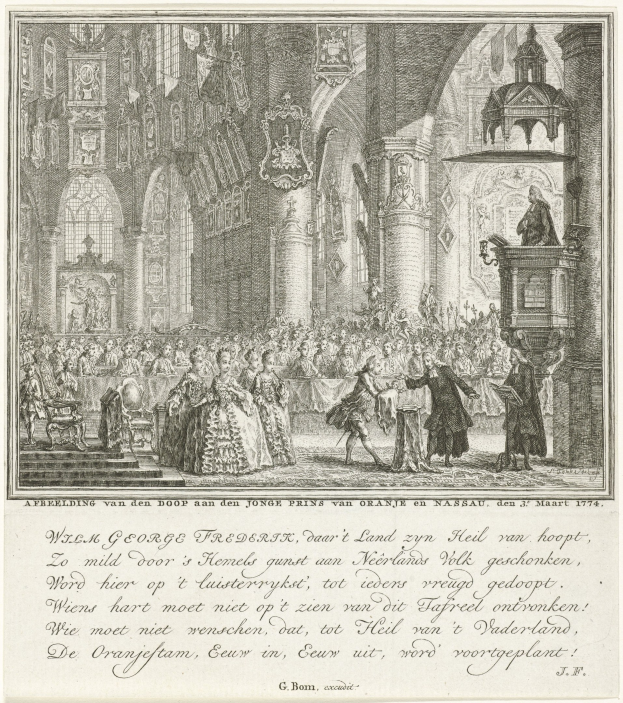 AFBEELDING van den DOOP aan den JONGE PRINS van ORANJE en NASSAU, den 3e Maart 1774.
WILM GEORGE FREDERIK, daar 't Land zyn Heil van hoopt,
Zo mild door 's Hemels gunst aan Neêrlands Volk geschonken,
Word hier op 't luisterrykst', tot iedens vreugd gedoopt.
Wiens hart moet niet op 't zien van dit Tafreel ontvonken!
Wie moet niet wenschen, dat, tot Heil van 't Vaderland,
De Oranjestam, Eeuw in, Eeuw uit, word' voortgeplant!
J. F.
G. Bom, excudit